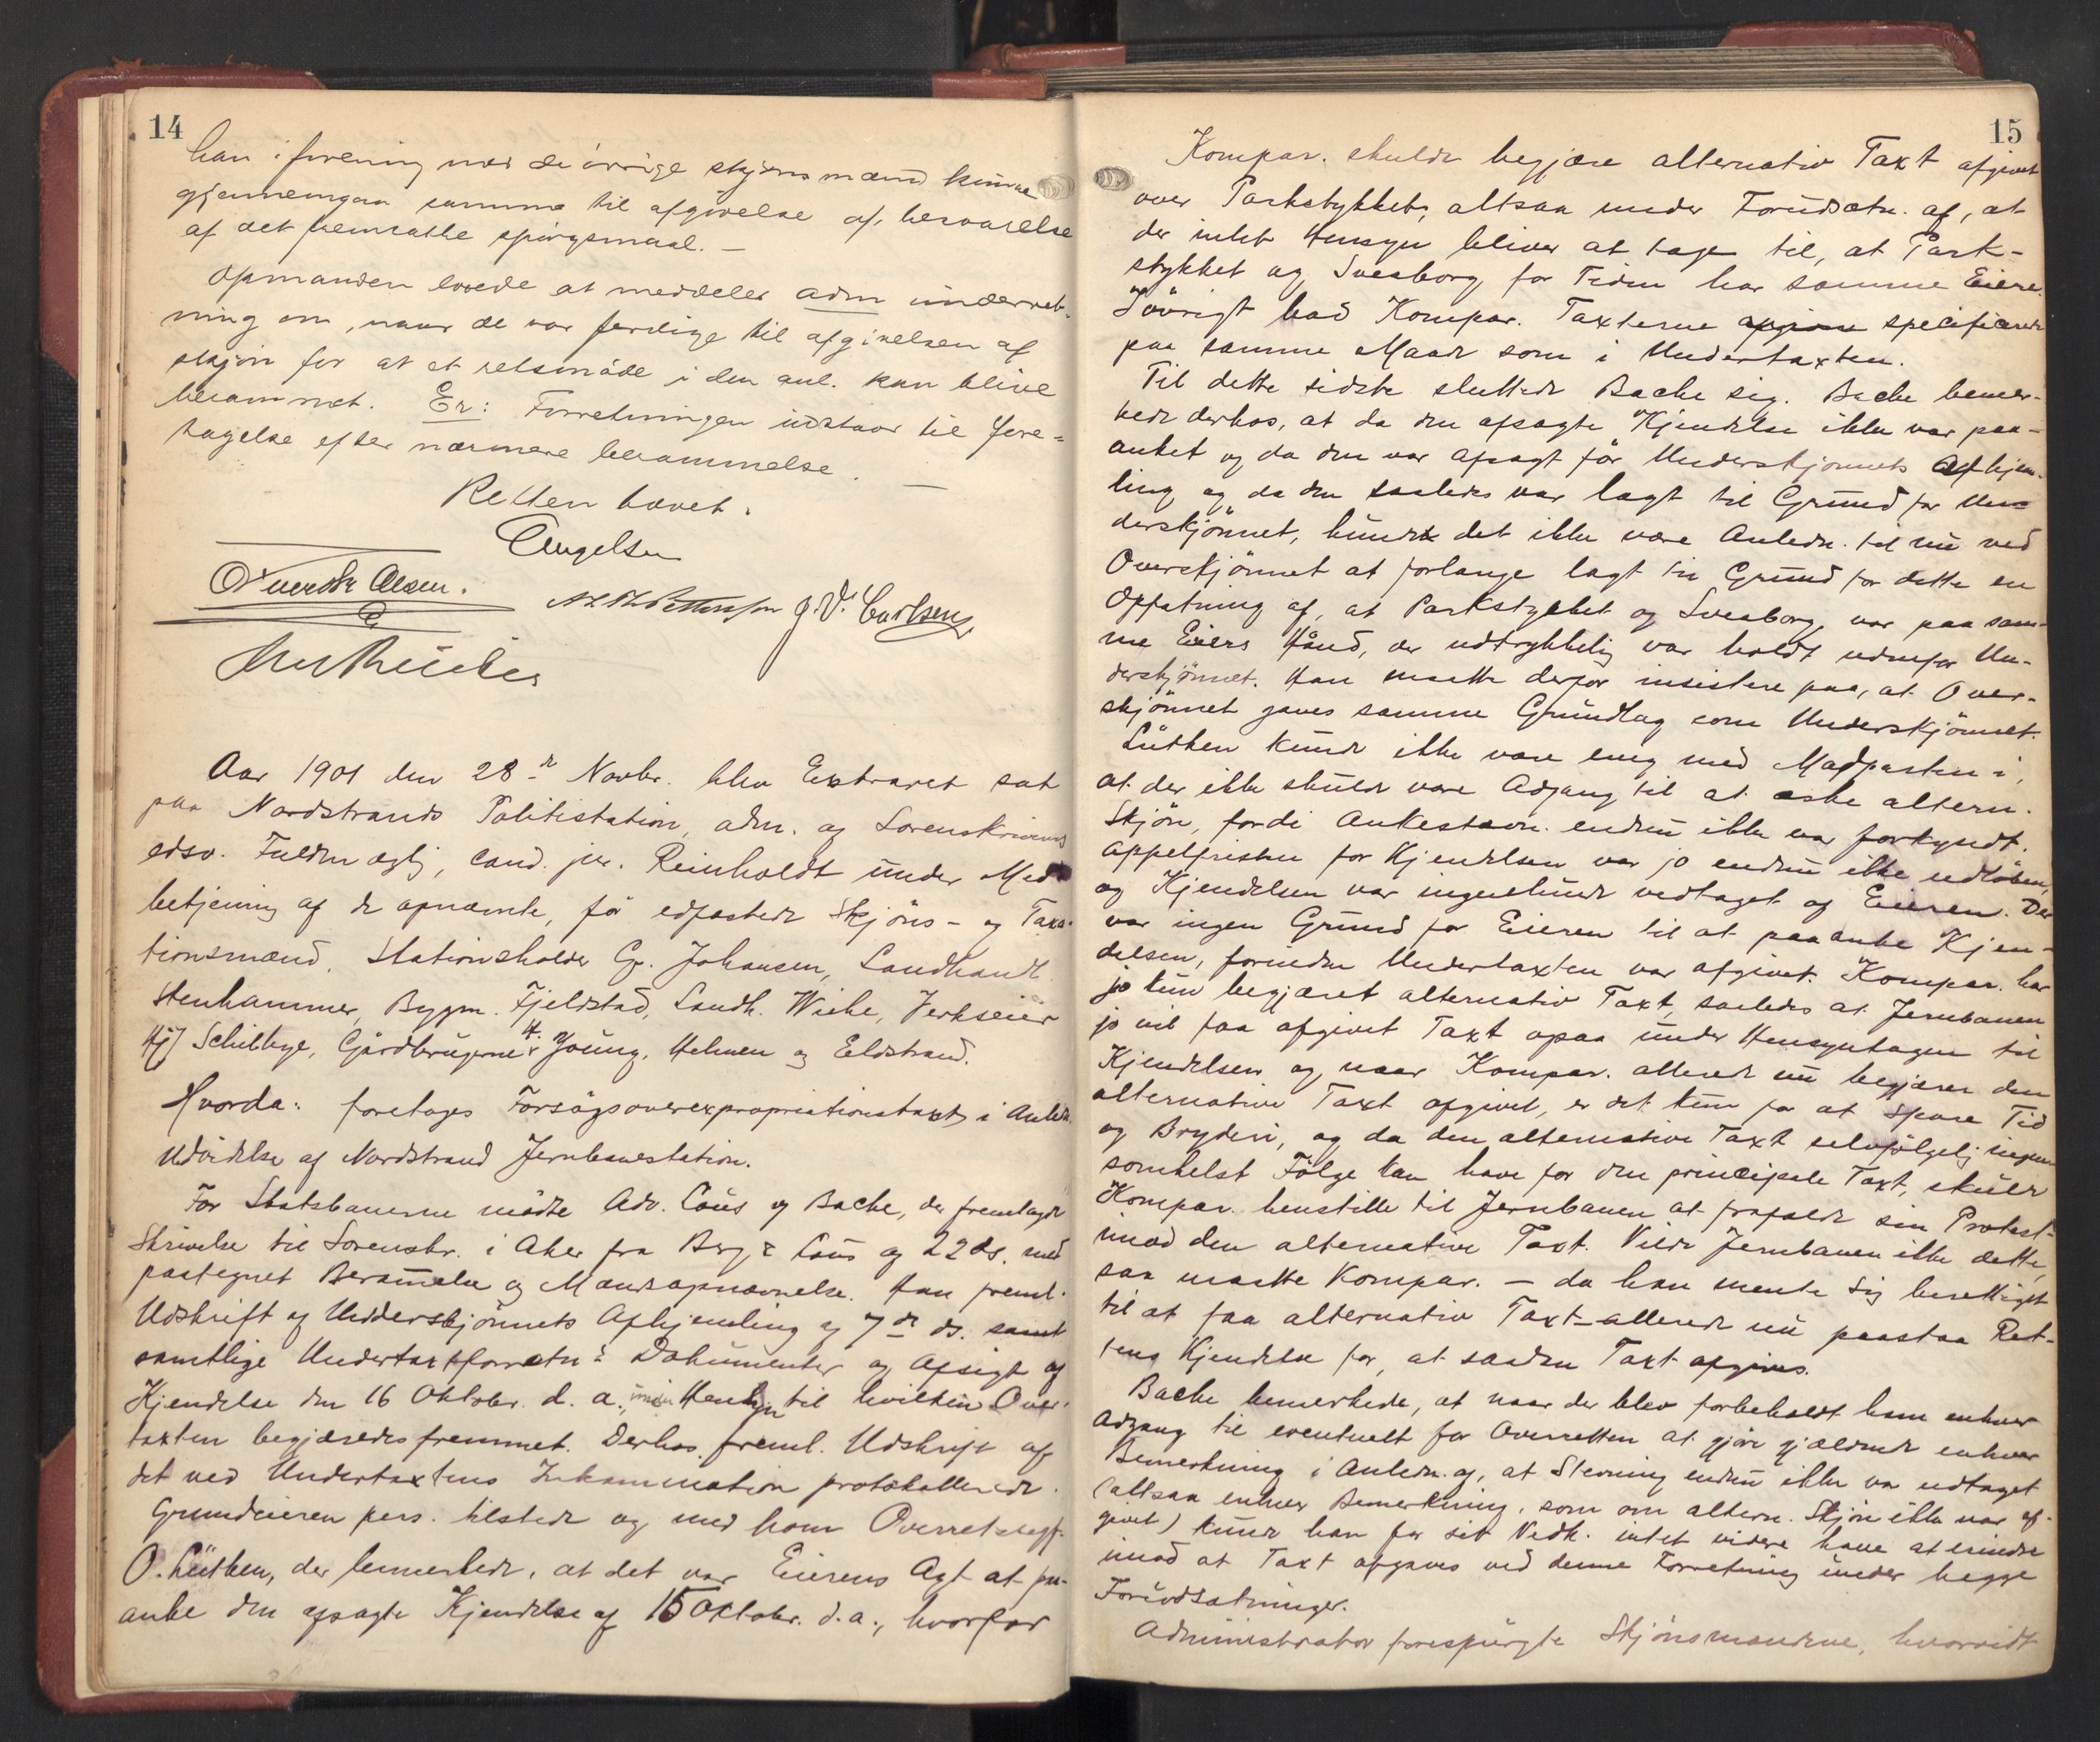 14
han i forening med de øvrige skjønsmænd kunne
gjennemgaa samme til afgivelse af besvarelse
af det fremsatte spørgsmaal. —
Opmanden lovede at meddele adm underret-
ning om, naar de var færdige til afgivelsen af
skjøn for at et retsmøde i den anl. kan blive
berammet. Er: Forretningen udstaar til fore=
tagelse efter nærmere berammelse. —
Retten hævet.
CEngelsen
Olsen.
J. V. Carlsen
Aar 1901 den 28de Novbr. blev Extraret sat
paa Nordstrands Politistation, adm. af Sorenskriverens
edsv. Fuldmægtig, cand. jur. Reinholdt under Med-
betjening af de opnævnte, før edfæstede Skjøns- og Taxa-
tionsmænd, Stationsholder Gr. Johansen, Landhandl.
Stenhammer, Bygm. Fjeldstad, Landh. Wiche, Verkseier
Hj. Schibbye, Gårdbrugerne H. Young, Helmen og Eeldstrand.
Hvorda: foretoges Forsøgsoverexpropriationstaxt i Anledn.
Udvidelse af Nordstrand Jernbanestation.
For Statsbanerne mødte Adv. Coüs og Bache, der fremlagde
Skrivelse til Sorenskr. i Aker fra B. & Coüs af 22 ds. med
paategnet Berammelse og Mændsopnævnelse. Han freml.
Udskrift af Underskjønnets Afhjemling af 7de ds. samt
samtlige Undertaxtforretn.s Dokumenter og Afsigt af
Kjendelse den 16 Oktober d. a., under Hensyn til hvilken Over-
taxten begjæredes fremmet. Derhos freml. Udskrift af
det ved Undertaxtens Inkamination protokollerede.
Grundeieren pers. tilstede og med ham Overretssagf.
O. Lütken, der bemerkede, at det var Eierens Agt at paa-
anke den afsagte Kjendelse af 15 Oktober d. a., hvorfor
15
Kompar. skulde begjære alternativ Taxt afgivet
over Parkstykket, altsaa under Forudsætn. af, at
der intet Hensyn bliver at tage til, at Park-
stykket og Sveaborg for Tiden har samme Eiere.
Iøvrigt bad Kompar. Taxterne afgivne specificerede
paa samme Maade som i Undertaxten.
Til dette sidste sluttede Bache sig. Bache bemer-
kede derhos, at da den afsagte Kjendelse ikke var paa-
anket og da den var afsagt før Underskjønnets Afhjem-
ling og da den saaledes var lagt til Grund for Un-
derskjønnet, kunde det ikke være Anledn. til nu ved
Overskjønnet at forlange lagt til Grund for dette en
Opfatning af, at Parkstykket og Sveaborg var paa sam-
me Eiers Hånd, der udtrykkelig var holdt udenfor Un-
derskjønnet. Han maatte derfor insistere paa, at Over-
skjønnet gaves samme Grundlag som Underskjønnet.
Lütken kunde ikke være enig med Modparten i,
at der ikke skulde være Adgang til at æske altern.
Skjøn, fordi Ankestævn. endnu ikke var forkyndt.
Appelfristen for Kjendelsen var jo endnu ikke udløben,
og Kjendelsen var ingenlunde vedtaget af Eieren. Der
var ingen Grund for Eieren til at paaanke Kjen-
delsen, forinden Undertaxten var afgivet. Kompar. har
jo kun begjæret alternativ Taxt, saaledes at Jernbanen
jo vil faa afgivet Taxt ogsaa under Hensyntagen til
Kjendelsen og naar Kompar. allerede nu begjærer den
alternative Taxt afgivet, er det kun for at spare Tid
og Bryderi, og da den alternative Taxt selvfølgelig ingen-
somhelst Følge kan have for den principale Taxt, skulde
Kompar. henstille til Jernbanen at frafalde sin Protest
imod den alternative Taxt. Vilde Jernbanen ikke dette,
saa maatte Kompar. — da han mente sig berettiget
til at faa alternativ Taxt — allerede nu paastaa Ret-
tens Kjendelse for, at saadan Taxt afgives.
Bache bemerkede, at naar der blev forbeholdt ham enhver
Adgang til eventuelt for Overretten at gjøre gjældende enhver
Bemerkning i Anledn. af, at Stevning endnu ikke var udtaget
(altsaa enhver Bemerkning, som om altern. Skjøn ikke var af-
givet) kunde han for sit Vedk. intet videre have at erindre
imod at Taxt afgaves ved denne Forretning under begge
Forudsætninger.
Administrator forespurgte Skjønsmændene, hvorvidt